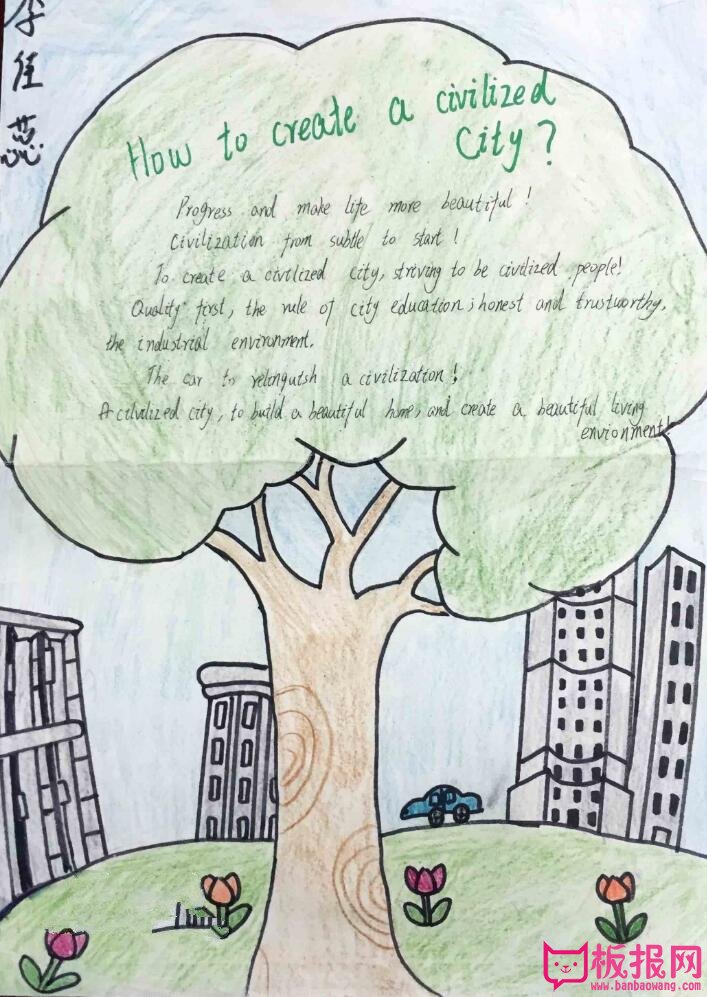 李佳蕊
How to create a civilized
City?
Progress and make life more beautiful!
Civilization from subtle to start!
To create a civilized city, striving to be civilized people!
Quality first, the rule of city education; honest and trustworthy,
the industrial environment.
The car to relinguish a civilization!
A cilvilized city, to build a beautiful home, and create a beautiful living
envrionment!
板报网
www.banbaowang.com